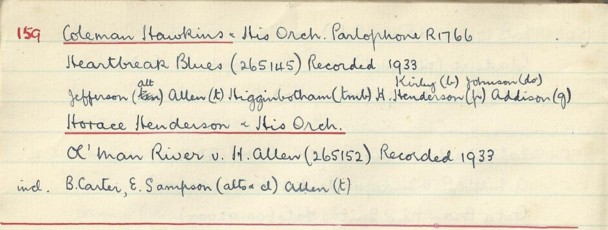 159 Coleman Hawkins & His Orch. Parlophone R1766
Heartbreak Blues (265145) Recorded 1933
alt Kirby (b) Johnson (ds)
Jefferson (ten) Allen (t) Higginbotham (tmb) H. Henderson (p) Addison (g)
Horace Henderson & His Orch.
Ol' Man River v. H. Allen (265152) Recorded 1933
incl. B. Carter, E. Sampson (alto & cl) Allen (t)